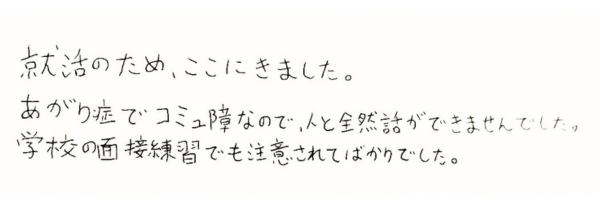 就活のため、ここにきました。
あがり症でコミュ障なので、人と全然話ができませんでした。
学校の面接練習でも注意されてばかりでした。